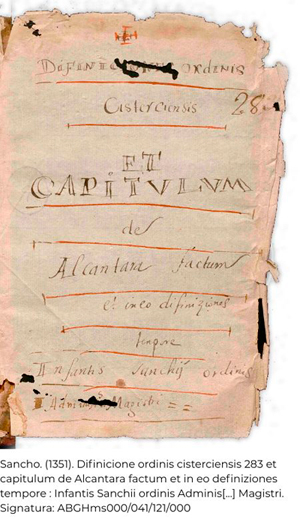 DIFINIC ORDINIS
Cisterciensis 28
ET
CAPITVLVM
de
Alcantara factum
et in eo difiniziones
tempore
Infantis Sanchij ordinis
Magistri = =
Sancho. (1351). Difinicione ordinis cisterciensis 283 et
capitulum de Alcantara factum et in eo definiziones
tempore : Infantis Sanchii ordinis Adminis[...] Magistri.
Signatura: ABGHms000/041/121/000